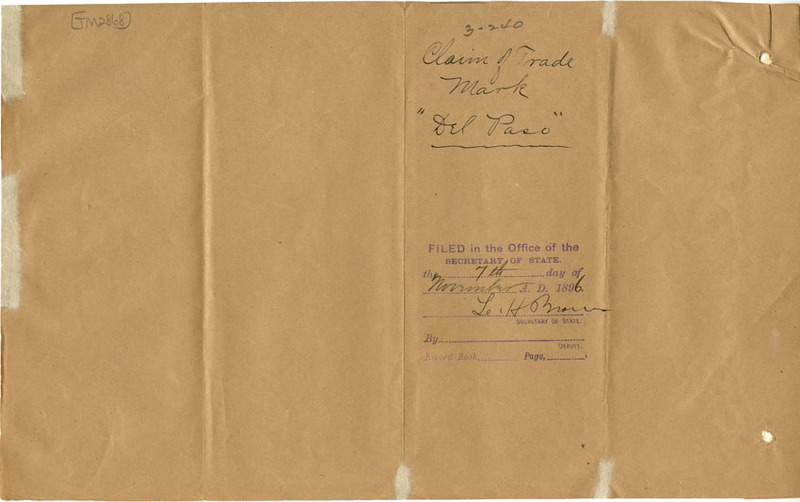 [TM2868]
3-240
Claim of Trade
Mark
"Del Paso"
FILED in the Office of the
SECRETARY OF STATE.
the 7th day of
November A. D. 1896.
L. H. Brown
SECRETARY OF STATE.
By
DEPUTY.
Record Book, Page,